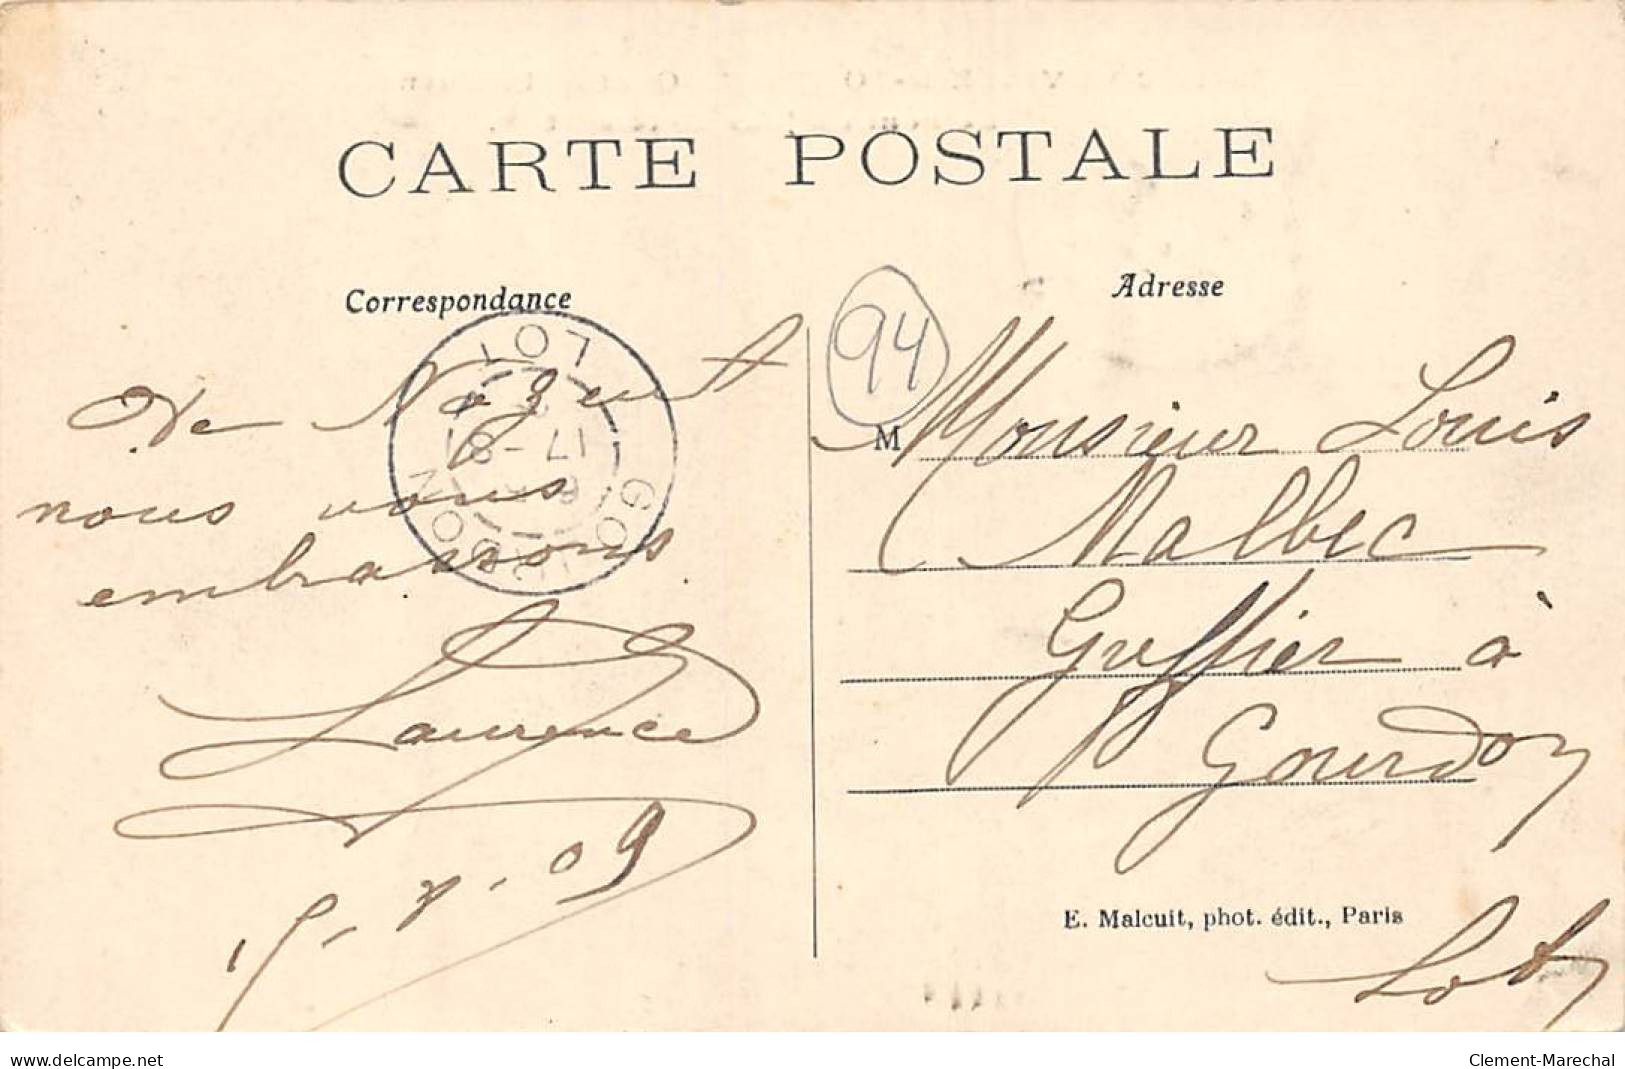 CARTE POSTALE
Correspondance
De Nogent
nous vous
embrassons.
Laurence
15-7-09
LOT
17-8
GOURDON
Adresse
94
M Monsieur Louis
Malbec
Greffier à
Gourdon
Lot
E. Malcuit, phot. édit., Paris
www.delcampe.net
Clement-Marechal